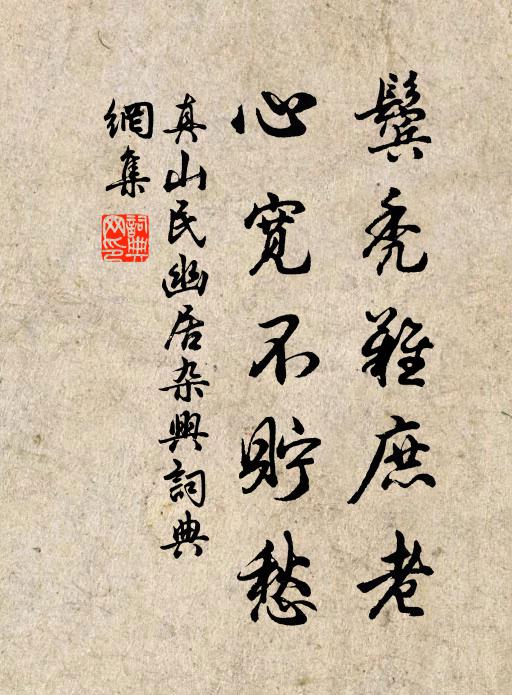 鬓秃难庶老
心宽不貯愁
真山民幽居杂興詞典
網集
詞典网印